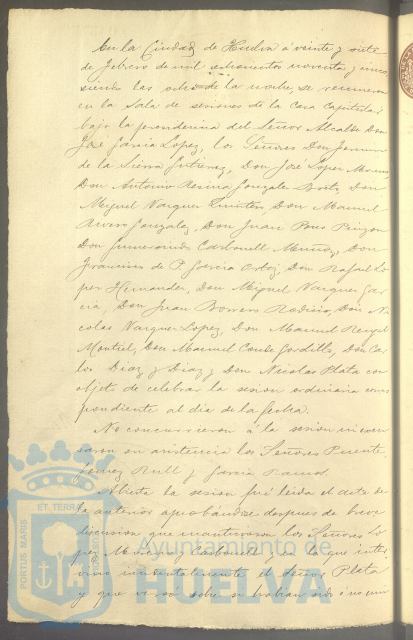 En la Ciudad de Huelva á veinte y siete
de febrero de mil ochocientos noventa y cinco,
siendo las ocho de la noche, se reunieron
en la Sala de sesiones de la Casa Capitular
bajo la presidencia del Señor Alcalde Don
José García Lopez, los Señores Don
de la Sierra Gutierrez, Don José Lopez Moreno
Don Antonio Resina Gonzalez Don
Miguel Vazquez Don Manuel
Gonzalez, Don Juan Pons Pinzon
Don Gumersindo Carbonell Muñoz, Don
Francisco de P. García Ortiz, Don Rafael Lo-
pez Hernandez, Don Miguel Vazquez Gar-
cia, Don Juan Borrero Don Ni-
colas Vazquez Lopez, Don Manuel Rengel
Montiel, Don Manuel Conde Gordillo, Don Car-
los Diaz y Diaz y Don Nicolas Plata con
objeto de celebrar la sesion ordinaria corres-
pondiente al dia de la fecha.
No concurrieron á la sesion
su asistencia los Señores Puente,
Rull y Garcia Ramos.
Abierta la sesion fué leida el acta de
la anterior aprobándose despues de breve
discusion que mantuvieron los Señores Lo-
pez Moreno y Carbonell y en la que inter-
vino incidentalmente el Señor Plata
y que versó sobre si habian sido ó no
PORTUS MARIS
ET TERRA
Ayuntamiento de
HUELVA